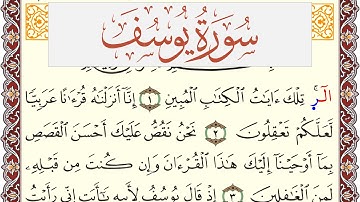 سُورَةُ يُوسُفَ
الٓر ۚ تِلْكَ ءَايَٰتُ ٱلْكِتَٰبِ ٱلْمُبِينِ ١ إِنَّآ أَنزَلْنَٰهُ قُرْءَٰنًا عَرَبِيًّا
لَّعَلَّكُمْ تَعْقِلُونَ ٢ نَحْنُ نَقُصُّ عَلَيْكَ أَحْسَنَ ٱلْقَصَصِ
بِمَآ أَوْحَيْنَآ إِلَيْكَ هَٰذَا ٱلْقُرْءَانَ وَإِن كُنتَ مِن قَبْلِهِۦ
لَمِنَ ٱلْغَٰفِلِينَ ٣ إِذْ قَالَ يُوسُفُ لِأَبِيهِ يَٰٓأَبَتِ إِنِّى رَأَيْتُ